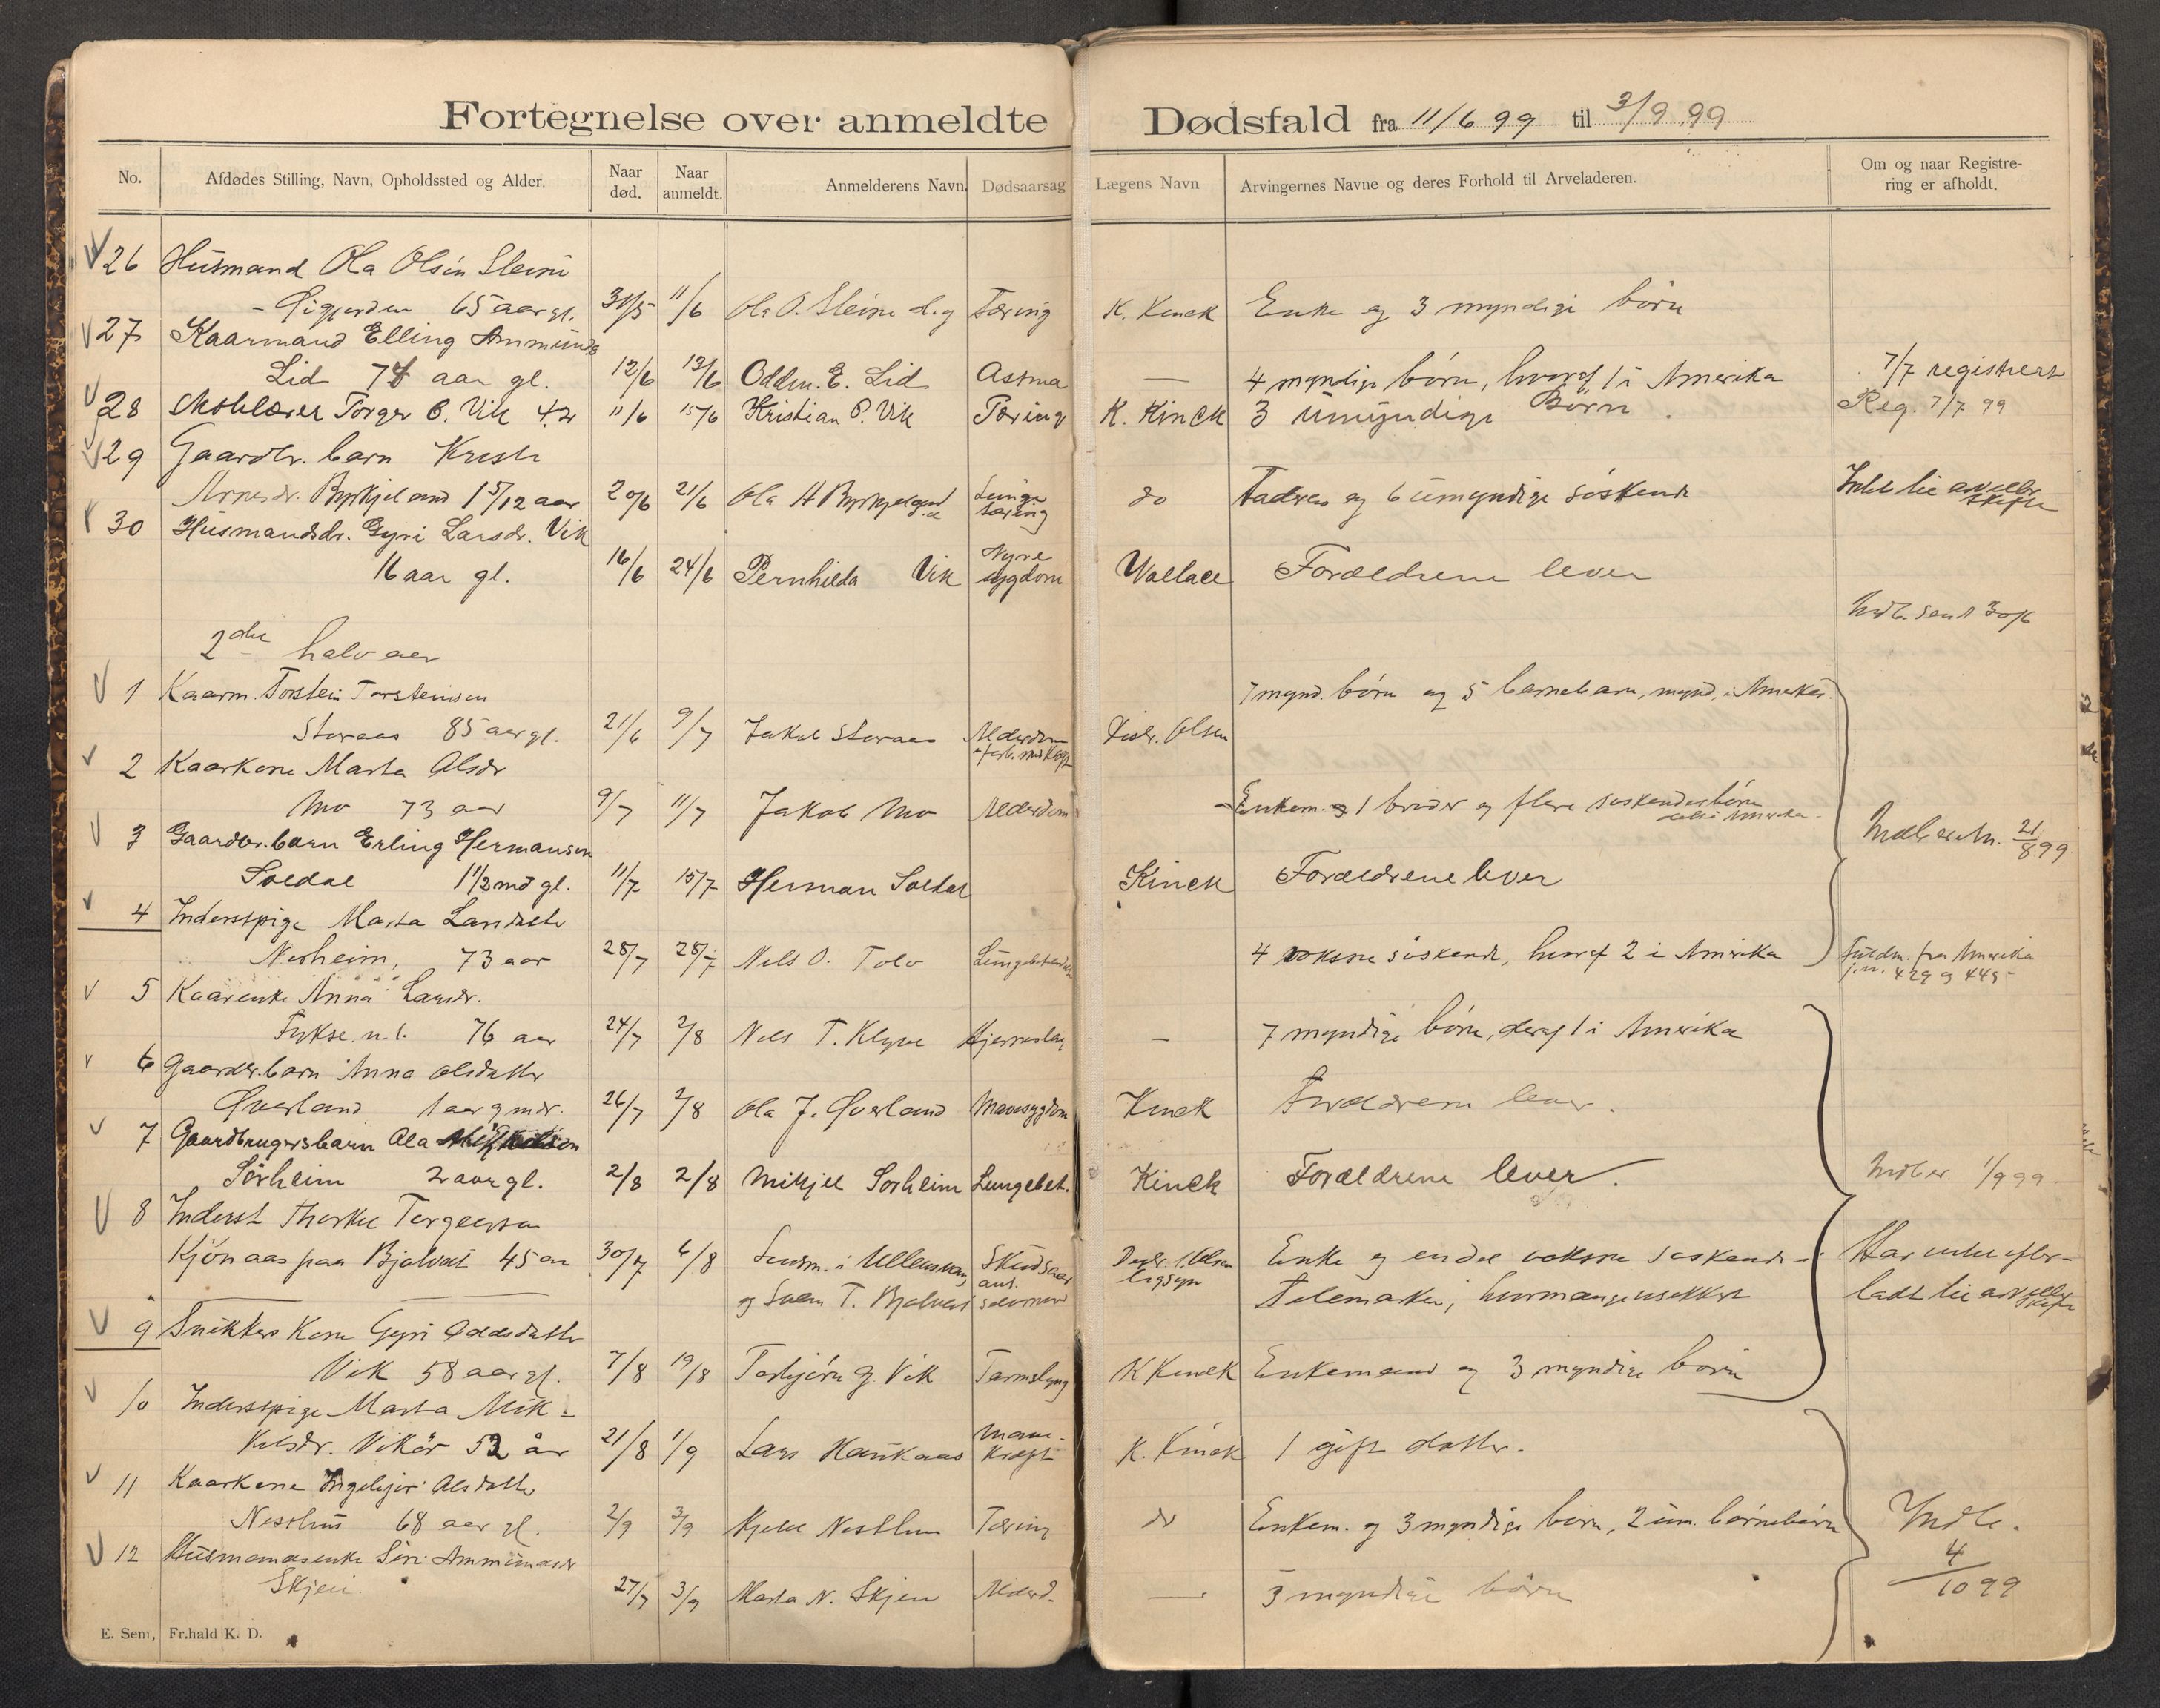 Fortegnelse over anmeldte Dødsfald fra 11/6 99 til 3/9 99
No. Afdødes Stilling, Navn, Opholdssted og Alder. Naar død. Naar anmeldt. Anmelderens Navn. Dødsaarsag Lægens Navn Arvingernes Navne og deres Forhold til Arveladeren. Om og naar Registrering er afholdt.
26 Husmand Ola Olsen Steine
65 aar gl. 31/5 11/6 Ola O. Steine Tæring K. Kinck Enke og 3 myndige börn
27 Kaarmand Elling Ammunds
Lid 74 aar gl. 12/6 13/6 Oddm. E. Lid Astma — 4 myndige börn, hvoraf 1 i Amerika 7/7 registrert
28 Torger O. Vik 42 11/6 15/6 Kristian O. Vik Tæring K. Kinck 3 umyndige Börn. Reg. 7/7 99
29 Gaardbr. barn Kristi
Arnesdr. Byrkjeland 1 5/12 aar 20/6 21/6 Ola A Byrkjeland Lunge tæring do Faderen og 6 umyndige söskende Intet til arv eller skifte
30 Husmandsdr. Gyri Larsdr. Vik
16 aar gl. 16/6 24/6 Pernhilda Vik Nyre sygdom Wallace Forældrene lever
Indb. sendt 30/6
2det halvaar
1 Kaarm. Torstein Torsteinsen 7 mynd. börn og 5 barnebarn, mynd, i Amerika.
Storaas 85 aar gl. 21/6 9/7 Jakob Storaas Alderdom Distr. Olsen
2 Kaarkone Marta Olsdr
Mo 73 aar 9/7 11/7 Jakob Mo Alderdom Enkem. og 1 broder og flere söskendebörn dels i Amerika
3 Gaardbr. barn Erling Hermansen Indberetn. 21/8 99
Soldal 1 1/2 md gl. 11/7 15/7 Herman Soldal Kinck Forældrene lever
4 Inderstpige Marta Larsdatter
Nesheim, 73 aar 28/7 28/7 Nels O. Tolo Lungebetændelse 4 voksne söskende, hvoraf 2 i Amerika Fuldm. fra Amerika
j.n. 429 og 445
5 Kaarenke Anna Larsdr.
Fykse n.l. 76 aar 24/7 2/8 Nels T. Klyve Hjerneslag — 7 myndige börn, deraf 1 i Amerika
6 Gaardbr. barn Anna Olsdatter
Qverland 1 aar 9 mdr. 26/7 2/8 Ola J. Qverland Mavesygdom Kinck Forældrene lever.
7 Gaardbrugersbarn Ola
Sörheim 2 aar gl. 2/8 2/8 Mikjel Sörheim Lungebet. Kinck Forældrene lever. Indber. 1/9 99
8 Inderst Thorkel Torgeirsen
Kjönaas paa Bjolvet 45 aar 30/7 6/8 Lensm. i Ullensvang Skudsaar Enke og endel voksne söskende i Har intet efter-
og Svein T. Bjolvet ant. selvmord Ligsyn Telemarken, hvormange usikkert ladt til arv eller skifte
9 Snikkers Kone Gyri Oddsdatter
Vik 58 aar gl. 7/8 19/8 Torbjörn G. Vik Tarmslyng K Kinck Enkemand og 3 myndige börn
10 Inderstpige Marta Mik-
kelsdr. Vikör 52 år 21/8 1/9 Lars Haukaas Mave-kræft K. Kinck 1 gift datter.
11 Kaarkone Ingebjör Olsdatter
Nesthus 68 aar gl. 2/9 3/9 Kjetel Nesthus Tæring do Enkem. og 3 myndige börn, 2 um. börnebörn Indb. 4/10 99
12 Husmandsenke Siri Ammundsdr
Skjeie. 27/7 3/9 Marta N. Skjeie Alderd. — 3 myndige börn
E. Sem, Fr.hald K. D.